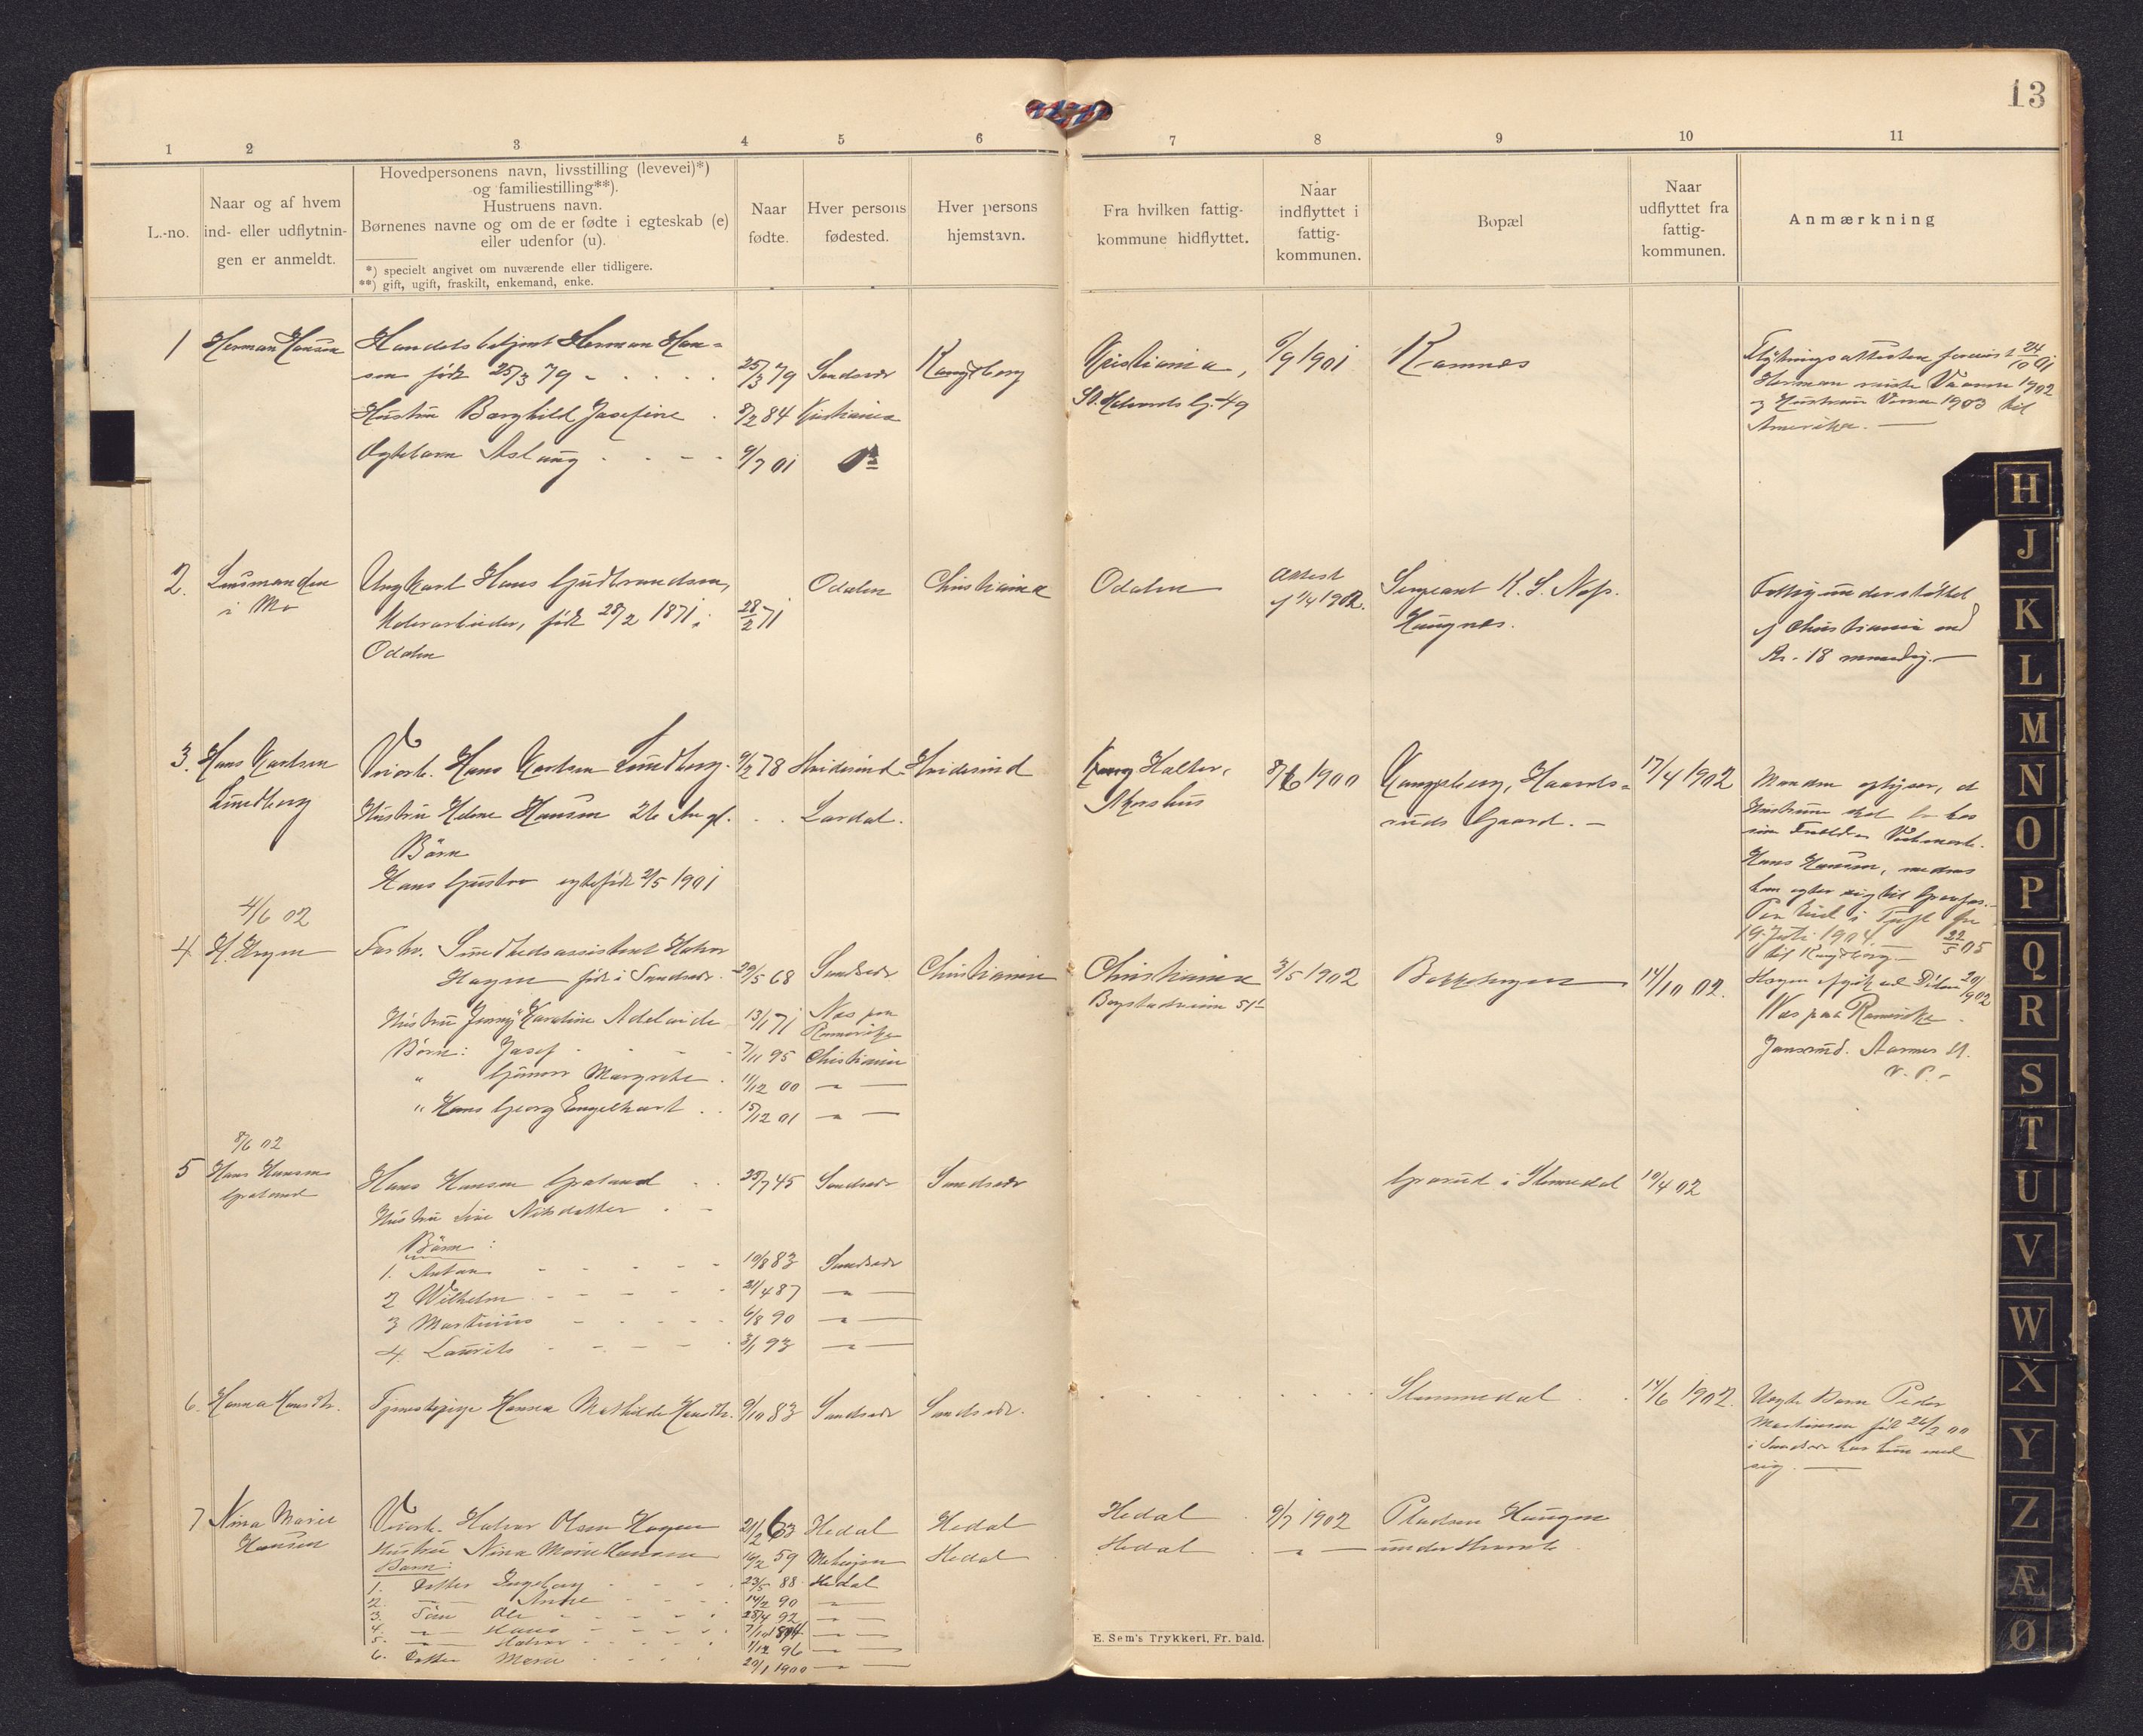 13
1 2 3 4 5 6 7 8 9 10 11
L.-no.
Naar og af hvem
ind- eller udflytnin-
gen er anmeldt.
Hovedpersonens navn, livsstilling (levevei)*)
og familiestilling**).
Hustruens navn.
Børnenes navne og om de er fødte i egteskab (e)
eller udenfor (u).
*) specielt angivet om nuværende eller tidligere.
**) gift, ugift, fraskilt, enkemand, enke.
Naar
fødte.
Hver persons
fødested.
Hver persons
hjemstavn.
Fra hvilken fattig-
kommune hidflyttet.
Naar
indflyttet i
fattig-
kommunen.
Bopæl
Naar
udflyttet fra
fattig-
kommunen.
Anmærkning
1 Herman Hansen
Handelsbetjent Herman Han-
sen født 25/3 79
25/3 79 Sandsvær Kongsberg
Kristiania,
St. Halvards g. 49
6/9 1901 Komnes
Flytningsattesten forevist 24/10 01
Herman reiste Vaaren 1902
og Hustruen Vaaren 1903 til
Amerika.
Hustru Borghild Josefine 8/2 84 Kristiania
Ægtebarn Aslaug 9/7 01 do
2. Lensmanden
i Mo
Ungkarl Hans Gudbrandsen,
født 28/2 1871 i
Odalen
28/2 71 Odalen Christiania
Odalen
Attest
af 1/4 1902.
Sergeant K. S. Næs.
Haugnes.
Fattigunderstøttet
af Christiania med
Kr. 18 maanedlig.
3. Hans Karlsen
Lundberg
Veiarb. Hans Karlsen Lundberg. 9/2 78 Hvidesind Hvidesind
Holter,
Akershus
8/6 1900
Kongsberg, Haards-
ruds Gaard.
17/4 1902
Manden oplyser, at
Hustruen skal bo hos
sine Forældre
Hans Hansen, medens
han agter sig til
19 Juli 1904 22/5 05
til Kongsberg
Hustru Helene Hansen 26 Aar gl. Lardal.
Børn
Hans Gustav egtefødt 2/5 1901
4/6 02
4 H. Hagen
Forhv. Sundhedsassistent Halvor
Hagen født i Sandsvær. 29/5 68 Sandsvær Christiania
Christiania
Bogstadveien 51
3/5 1902 Bekkehagen 14/10 02.
Hagen
Næs paa Romerike.
Jansrud. Aarnes St.
Hustru Jenny Karoline Adelaide 13/1 71 Næs paa
Romerike
Børn: Josef 7/11 95 Christiania
" Gunvor Margrethe 11/12 00 — " —
" Hans Georg Engelhart 15/12 01 — " —
8/6 02
5 Hans Hansen
Graland
Hans Hansen Graland 25/7 45 Sandsvær Sandsvær
Grorud i Stemmedal 10/4 02
Hustru Nilsdatter
Børn:
1. Anton 10/8 83 Sandsvær
2 Wilhelm 21/4 87 — " —
3 Martinius 6/8 90 — " —
4. Laurits 3/1 93 — " —
6. Hanna Hansdtr.
Tjenestepige Hanna Mathilde Hansdtr. 9/10 83 Sandsvær Sandsvær.
Stemmedal 14/6 1902.
Uægte Barn Peder
Martinsen født 26/2 00
i Sandsvær har hun med
sig.
7 Nina Marie
Hansen
Veiarb. Halvor Olsen Hagen 21/2 63 Hedal Hedal
Hedal 9/7 1902 Pladsen Haugen
Hustru Nina Marie Hansen 16/2 59 Hedal
Hedal — " — under
Børn:
1. Datter Ingeborg 23/5 88 Hedal
2. — " — Anne 14/2 90 — " —
3. Søn Ole 28/4 92 — " —
4. — " — Hans 7/10 1894 — " —
5. — " — Halvor 1/12 96 — " —
6. Datter Marie 20/1 1900 — " —
E. Sem's Trykkeri, Fr. hald.
H
J
K
L
M
N
O
P
Q
R
S
T
U
V
W
X
Y
Z
Æ
Ø